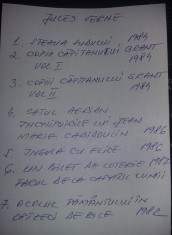 JULES VERNE
1. STEAUA SUDULUI 1984
2. COPIII CĂPITANULUI GRANT
VOL I 1984
3. COPIII CĂPITANULUI GRANT
VOL II 1984
4. SATUL AERIAN
ÎNCHIPUIRILE LUI JEAN
MARIE CABIDOULIN 1986
5. INSULA CU ELICE 1986
6. UN BILET DE LOTERIE 1987
FARUL DE LA CAPĂTUL LUMII
7. OCOLUL PĂMÂNTULUI ÎN
OPTZECI DE ZILE 1982